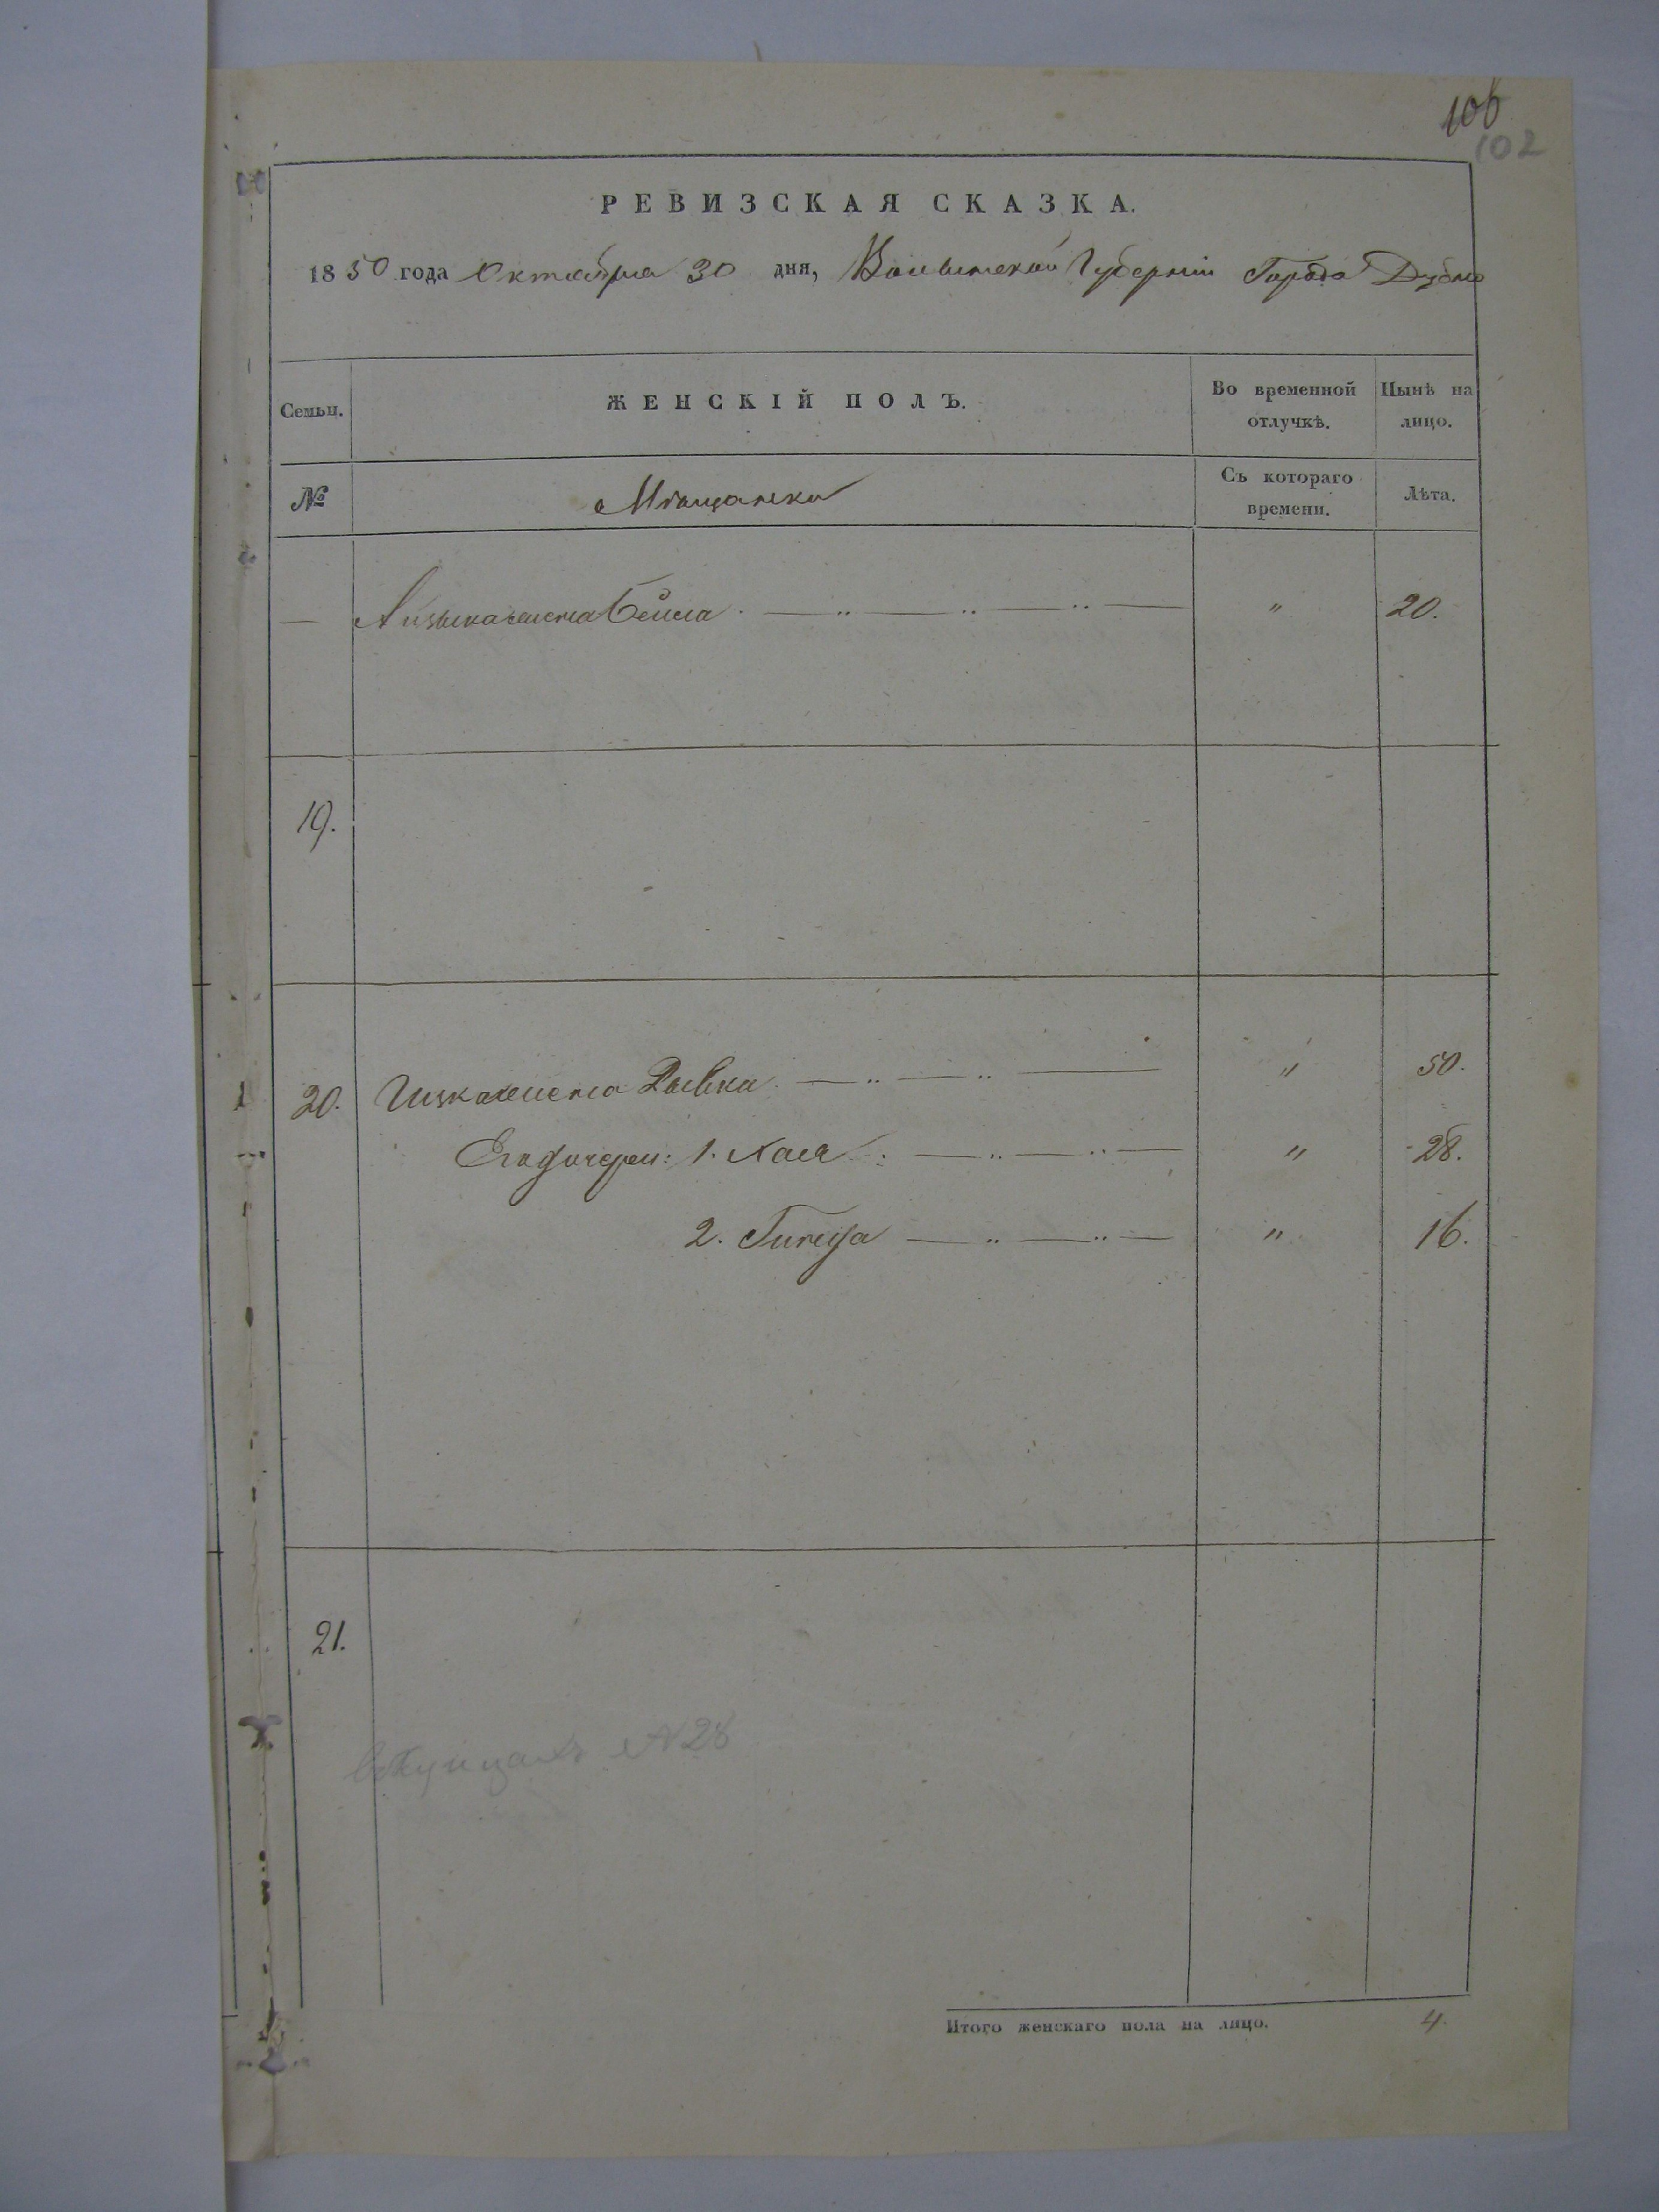 106
102
РЕВИЗСКАЯ СКАЗКА.
1850 года Октября 30 дня, Волынской Губерніи Города Дубно
Семьи. ЖЕНСКІЙ ПОЛЪ. Во временной отлучкѣ. Нынѣ на лицо.
№ Мѣщанки Съ котораго времени. Лѣта.
— жена Бейла — „ — „ — „ — „ 20.
19.
20. Ицка жена Рывка — „ — „ — „ 50.
Его дочери: 1. Хая — „ — „ — „ 28.
2. Гинда — „ — „ — „ 16.
21.
№ 28
Итого женскаго пола на лицо. 4.